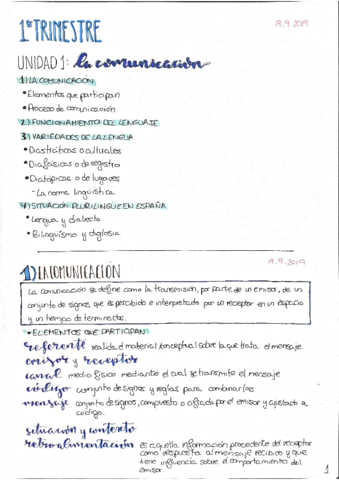 1er TRIMESTRE
18.9.2019
UNIDAD 1: la comunicación
1) LA COMUNICACIÓN
•Elementos que participan
•Proceso de comunicación
2) FUNCIONAMIENTO DEL LENGUAJE
3) VARIEDADES DE LA LENGUA
•Diastráticas o culturales
•Diafásicas o de registro
•Diatópicas o de lugares
-La norma lingüística
4) SITUACIÓN PLURILINGÜE EN ESPAÑA
•Lengua y dialecto
•Bilingüismo y diglosia
19.9.2019
1) LA COMUNICACIÓN
La comunicación se define como la transmisión, por parte de un emisor, de un
conjunto de signos, que es percibido e interpretado por un receptor en un espacio
y un tiempo determinados.
•ELEMENTOS QUE PARTICIPAN
referente realidad material/conceptual sobre la que trata el mensaje.
emisor y receptor
canal medio físico mediante el cual se transmite el mensaje
código conjunto de signos y reglas para combinarlos
mensaje conjunto de signos, compuesto o cifrado por el emisor y ajustado a
código.
situación y contexto
retroalimentación es aquella información procedente del receptor
como respuesta al mensaje recibido y que
tiene influencia sobre el comportamiento del
emisor.
1